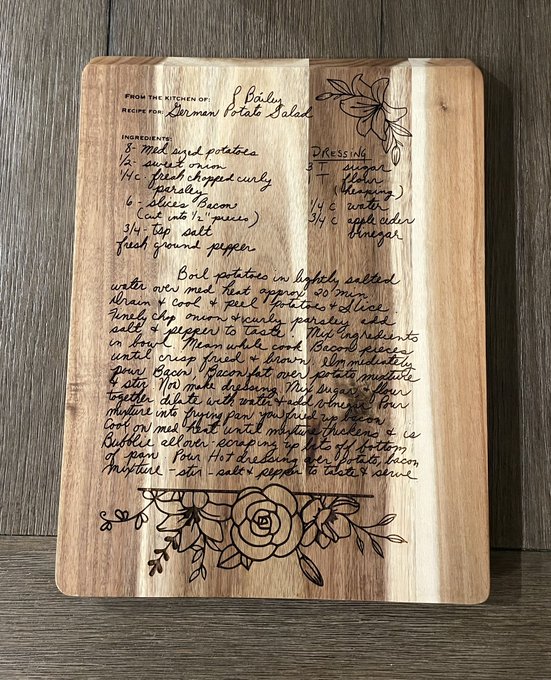 FROM THE KITCHEN OF: P Bailey
RECIPE FOR: German Potato Salad
INGREDIENTS:
8- Med sized potatoes
1/2- sweet onion
1/4 c - fresh chopped curly
parsley
6 - slices Bacon
(cut into 1/2" pieces)
3/4 - tsp salt
fresh ground pepper
DRESSING
3 T sugar
T flour
(heaping)
1/4 c water
3/4 c apple cider
vinegar
Boil potatoes in lightly salted
water over med heat approx 20 min.
Drain & cool & peel potatoes & slice
Finely chop onion & curly parsley add
salt & pepper to taste. Mix ingredients
in bowl. Mean while cook Bacon pieces
until crisp fried & brown. Immediately
pour Bacon & Bacon fat over potato mixture
& stir Now make dressing Mix sugar & flour
together dilute with water & add vinegar Pour
mixture into frying pan you fried up bacon
Cool on med heat until mixture thickens & is
Bubblie all over - scraping up bits off bottom
of pan - Pour Hot dressing over potato, bacon
mixture - stir - salt & pepper to taste & serve